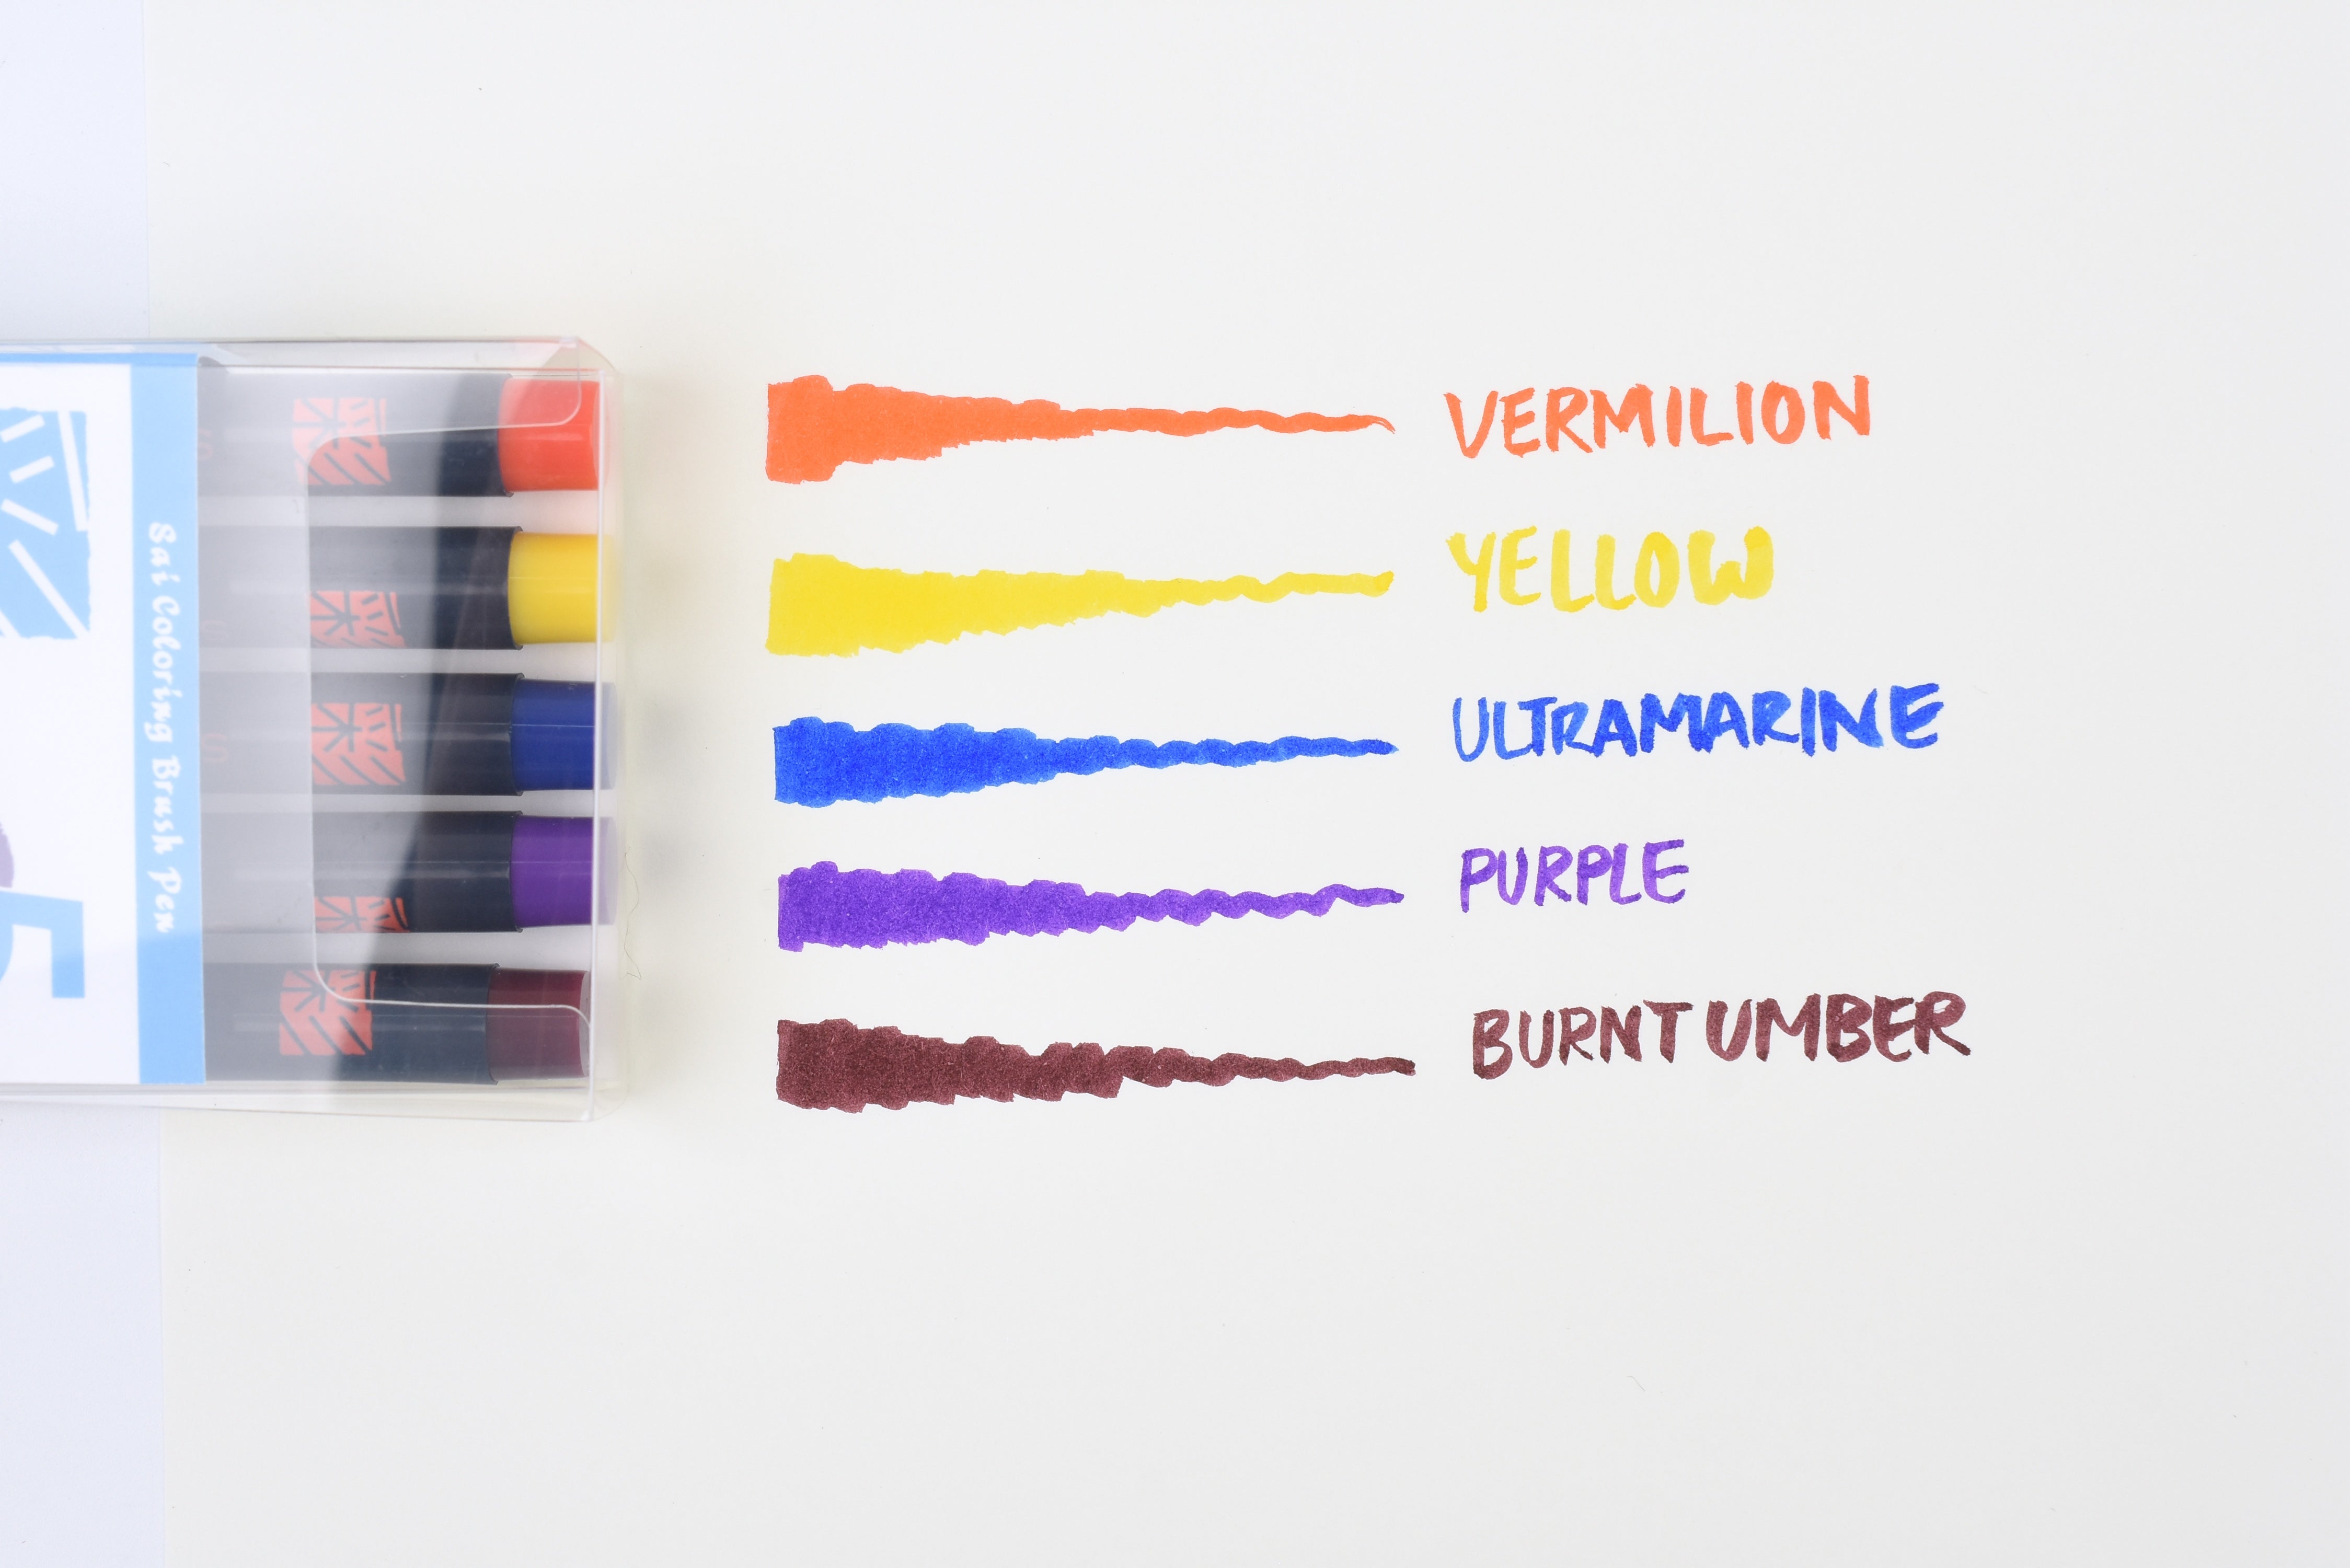 Sai Coloring Brush Pen
5
VERMILION
YELLOW
ULTRAMARINE
PURPLE
BURNT UMBER